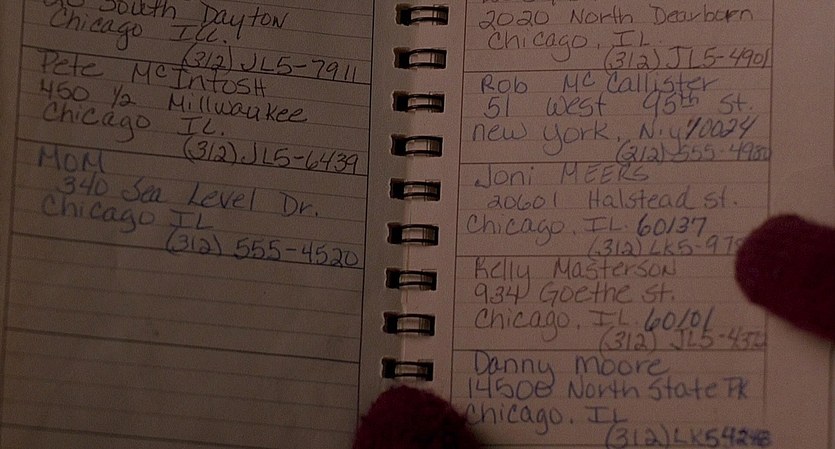 South Dayton
Chicago Ill.
(312) JL5-7911
Pete McIntosh
450 1/2 Millwaukee
Chicago IL.
(312) JL5-6439
MOM
340 Sea Level Dr.
Chicago IL
(312) 555-4520
2020 North Dearborn
Chicago, IL.
(312) JL5-4901
Rob McCallister
51 West 95th St.
new york, N.y 10024
(212) 555-4980
Joni MEERS
20601 Halstead st.
Chicago. IL. 60137
(312) LK5-97
Kelly Masterson
934 Goethe st.
Chicago, IL. 60101
(312) JL5-432
Danny moore
14500 North State PK
Chicago. IL
(312) LK54248